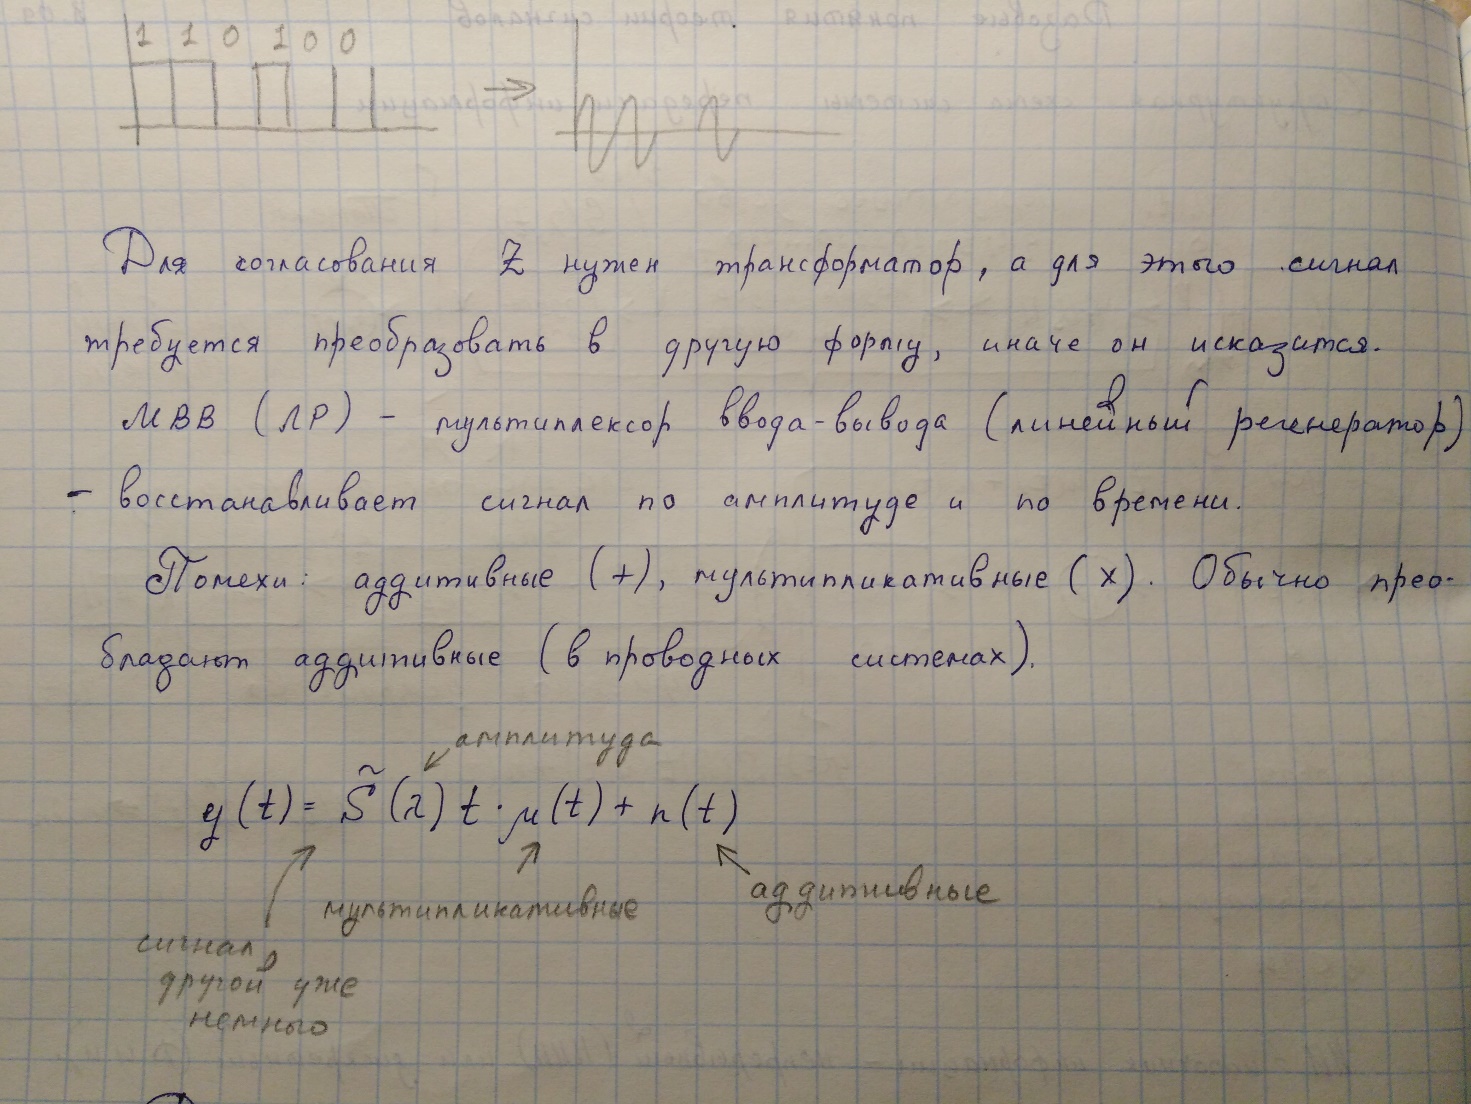 1 1 0 1 0 0
Для согласования Z нужен трансформатор, а для этого сигнал
требуется преобразовать в другую форму, иначе он исказится.
МВВ (ЛР) - мультиплексор ввода-вывода (линейный регенератор)
- восстанавливает сигнал по амплитуде и по времени.
Помехи: аддитивные (+), мультипликативные (х). Обычно прео-
бладают аддитивные (в проводных системах).
амплитуда
y(t) = S̃(λ) t · μ(t) + n(t)
аддитивные
мультипликативные
сигнал
другой уже
немного